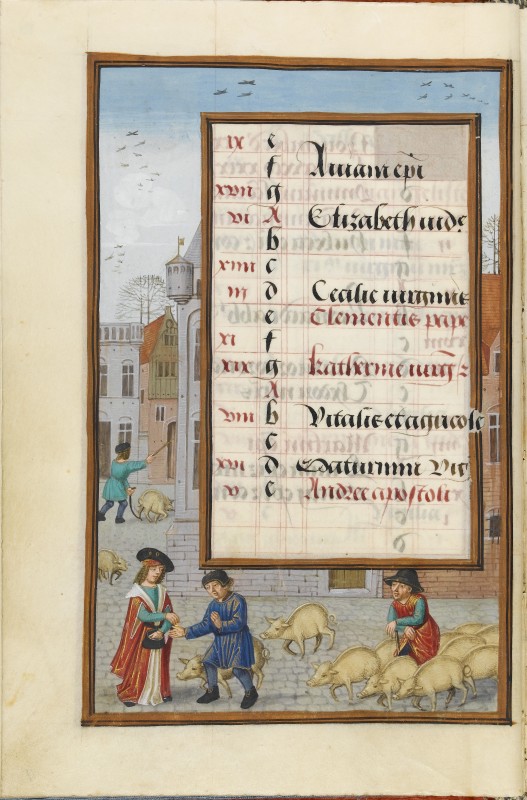 ix e
f Aniani epi
xvii g
vi A Elizabeth uid
b
xiiii c
iii d Cecilie uirginis
e Clementis pape
xi f
xix g Katherine uirg
A
viii b Vitalis et agricole
c
xvi d Saturnini Vig
v e Andree apostoli